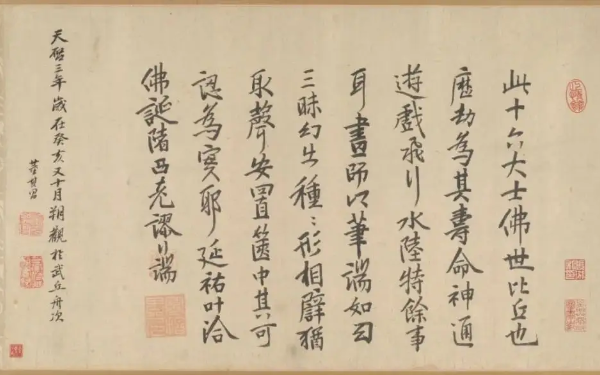 此十六大士佛世比丘也
歷劫為其壽命神通
遊戲飛行水陸特餘事
耳畫師以筆端如幻
三昧幻出種〻形相譬猶
取聲安置篋中其可
認為實耶延祐叶洽
佛誕西行端
天啓三年歲在癸亥又十月朔觀於武丘舟次
董其昌